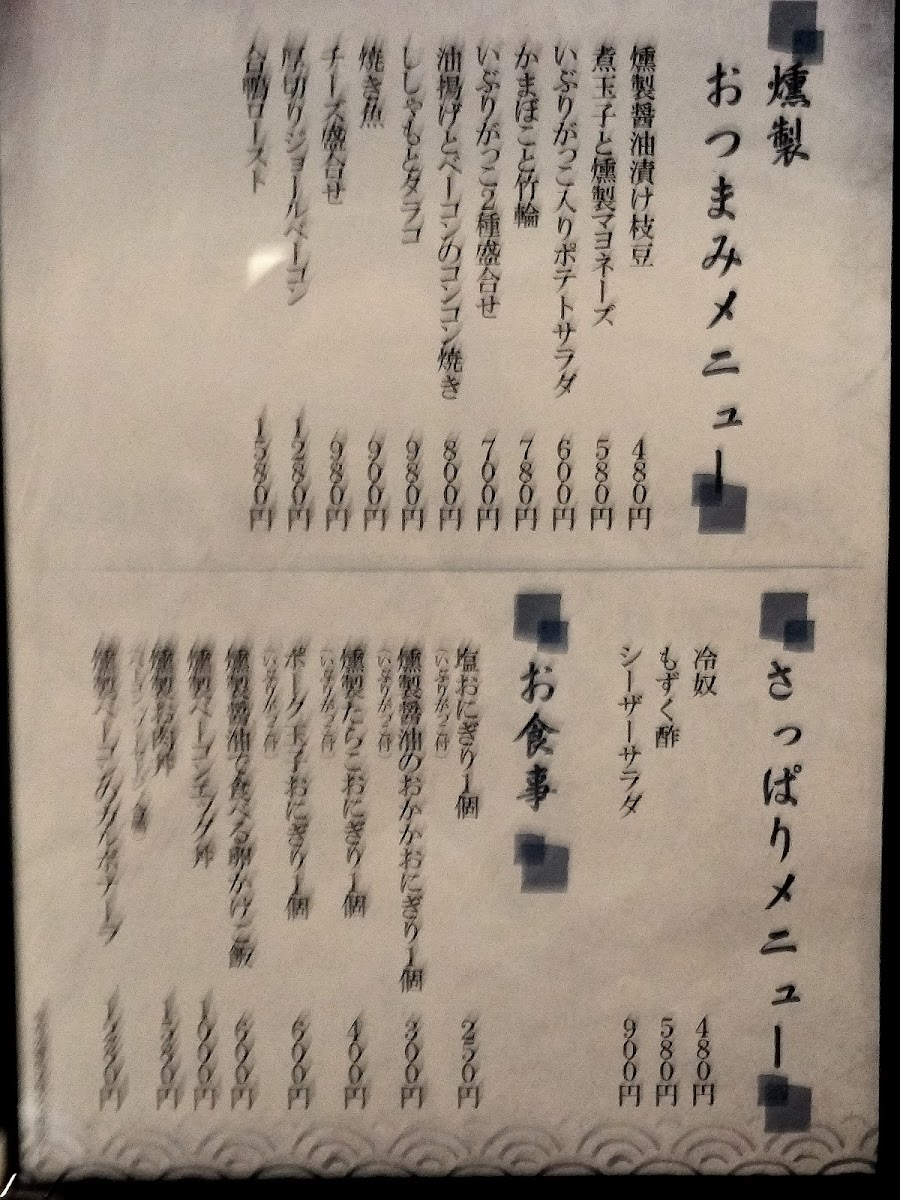 燻製
おつまみメニュー
燻製醤油漬け枝豆 480円
煮玉子と燻製マヨネーズ 580円
いぶりがっこ入りポテトサラダ 600円
かまぼこと竹輪 780円
いぶりがっこ2種盛合せ 700円
油揚げとベーコンのコンコン焼き 800円
ししゃもとタラコ 980円
焼き魚 900円
チーズ盛合せ 980円
厚切りジョールベーコン 1280円
合鴨ロースト 1580円
さっぱりメニュー
冷奴 480円
もずく酢 580円
シーザーサラダ 900円
お食事
塩おにぎり1個 250円
(いぶりがっこ付)
燻製醤油のおかかおにぎり1個 300円
(いぶりがっこ付)
燻製たらこおにぎり1個 400円
(いぶりがっこ付)
ポーク玉子おにぎり1個 600円
(いぶりがっこ付)
燻製醤油で食べる卵かけご飯 600円
燻製ベーコンエッグ丼 1000円
燻製お肉丼
燻製ベーコンのカルボナーラ